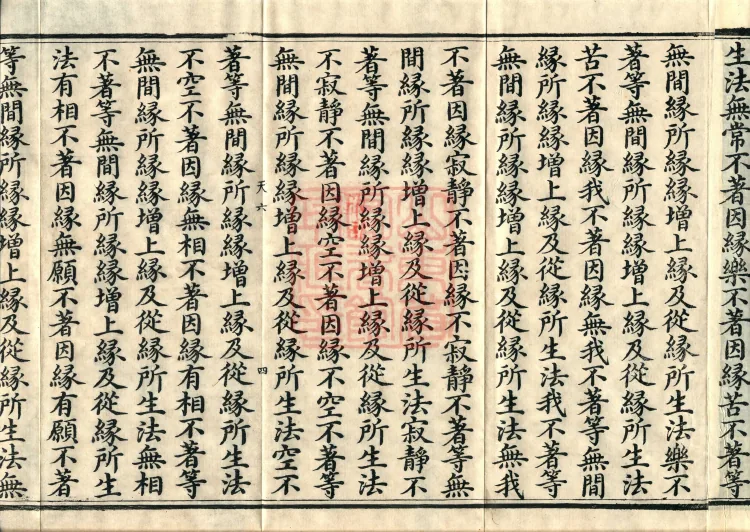 生法無常不著因緣樂不著因緣苦不著等
無間緣所緣緣增上緣及從緣所生法樂不
著等無間緣所緣緣增上緣及從緣所生法
苦不著因緣我不著因緣無我不著等無間
緣所緣緣增上緣及從緣所生法我不著等
無間緣所緣緣增上緣及從緣所生法無我
不著因緣寂靜不著因緣不寂靜不著等無
間緣所緣緣增上緣及從緣所生法寂靜不
著等無間緣所緣緣增上緣及從緣所生法
不寂靜不著因緣空不著因緣不空不著等
無間緣所緣緣增上緣及從緣所生法空不
天六 四
著等無間緣所緣緣增上緣及從緣所生法
不空不著因緣無相不著因緣有相不著等
無間緣所緣緣增上緣及從緣所生法無相
不著等無間緣所緣緣增上緣及從緣所生
法有相不著因緣無願不著因緣有願不著
等無間緣所緣緣增上緣及從緣所生法無